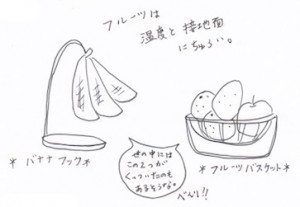 フルーツは
湿度と接地面
にちゅうい。
* バナナフック*
世の中には
この2つが
くっついたのも
あるそうな。
* フルーツバスケット*
べんり!!